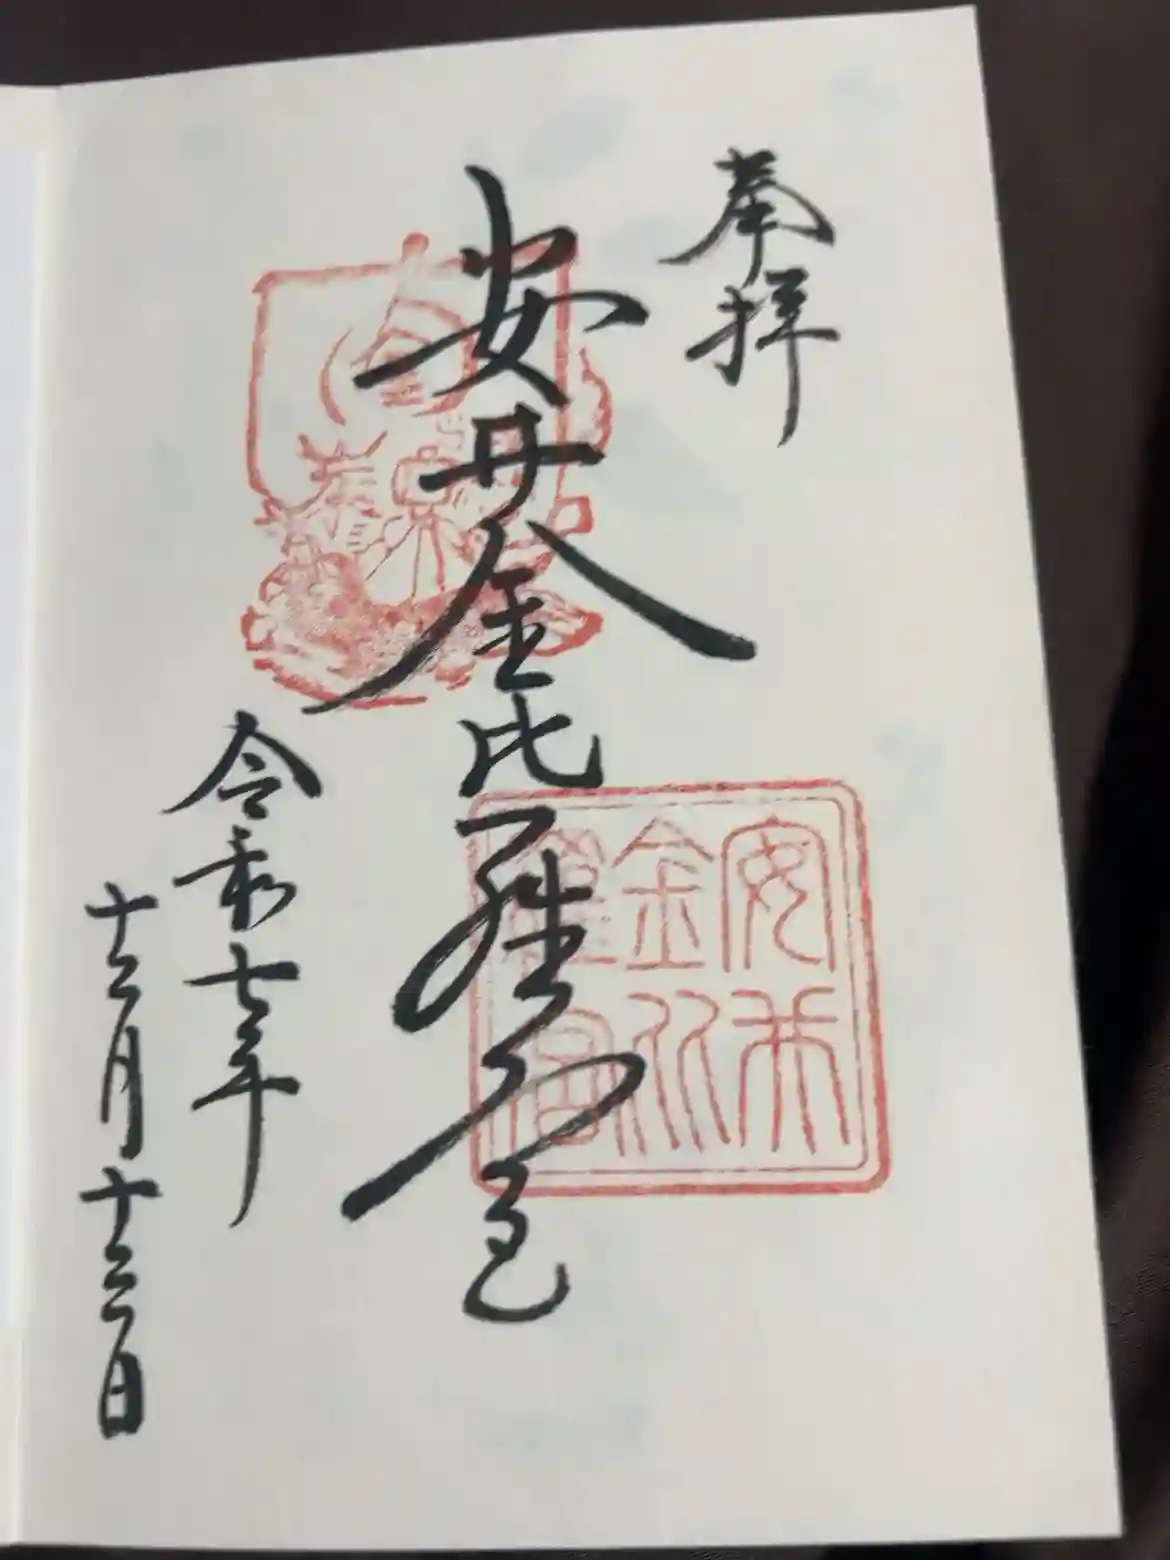 奉拝
安井金比羅宮
令和七年
十二月十二日
安井
金比
羅宮